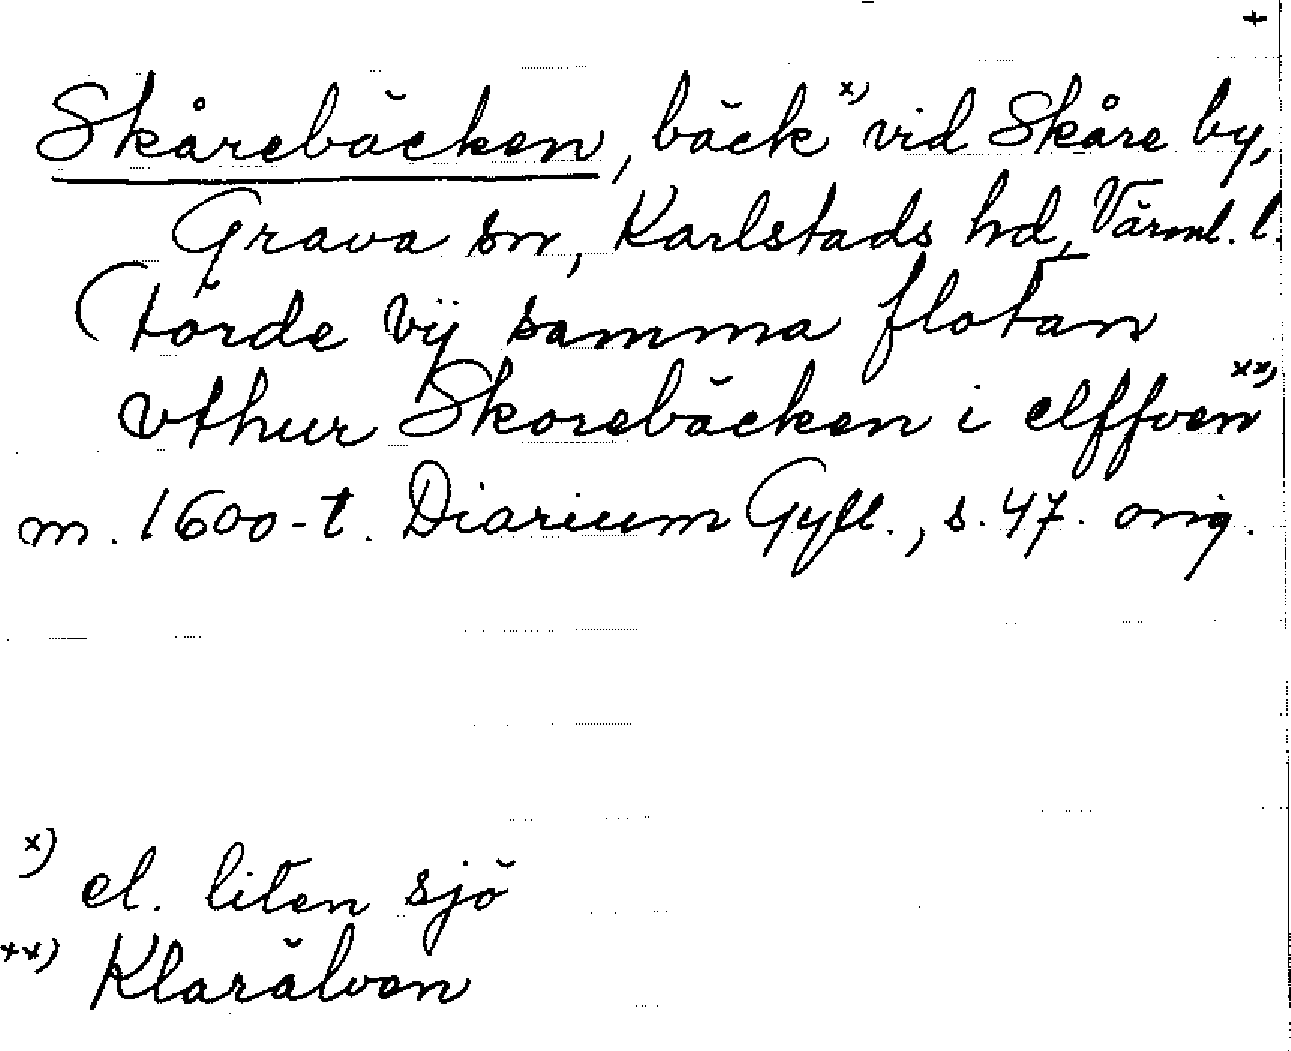 +
Skårebäcken, bäck x) vid Skåre by,
Grava sn, Karlstads hd, Värml. l.
(törde vÿ samma flotan
vthur Skorebäcken i elffven xx)
m. 1600-t. Diarium Gyll., s. 47. orig.
x) el. liten sjö
xx) Klarälven